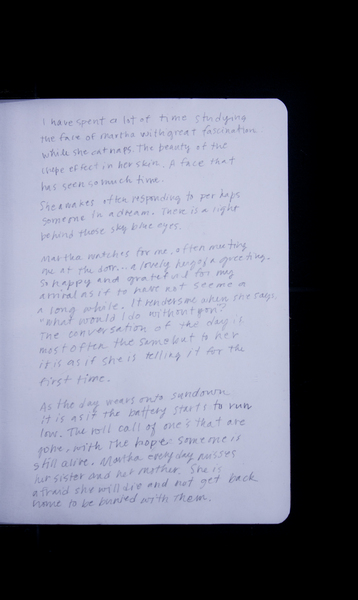 I have spent a lot of time studying
the face of Martha with great fascination
while she catnaps. The beauty of the
crepe effect in her skin. A face that
has seen so much time.
She awakes often responding to perhaps
someone in a dream. There is a light
behind those sky blue eyes.
Martha watches for me, often meeting
me at the door... a lovely hug of a greeting.
So happy and grateful for my
arrival as if to have not seen me in
a long while. It tenders me when she says,
"What would I do without you?"
The conversation of the day. I
most often the same but to her
it is as if she is telling it for the
first time.
As the day wears onto sundown
it is as if the battery starts to run
low. The roll call of one's that are
gone, with the hope someone is
still alive. Martha everyday misses
her sister and her mother. She is
afraid she will die and not get back
home to be buried with them.